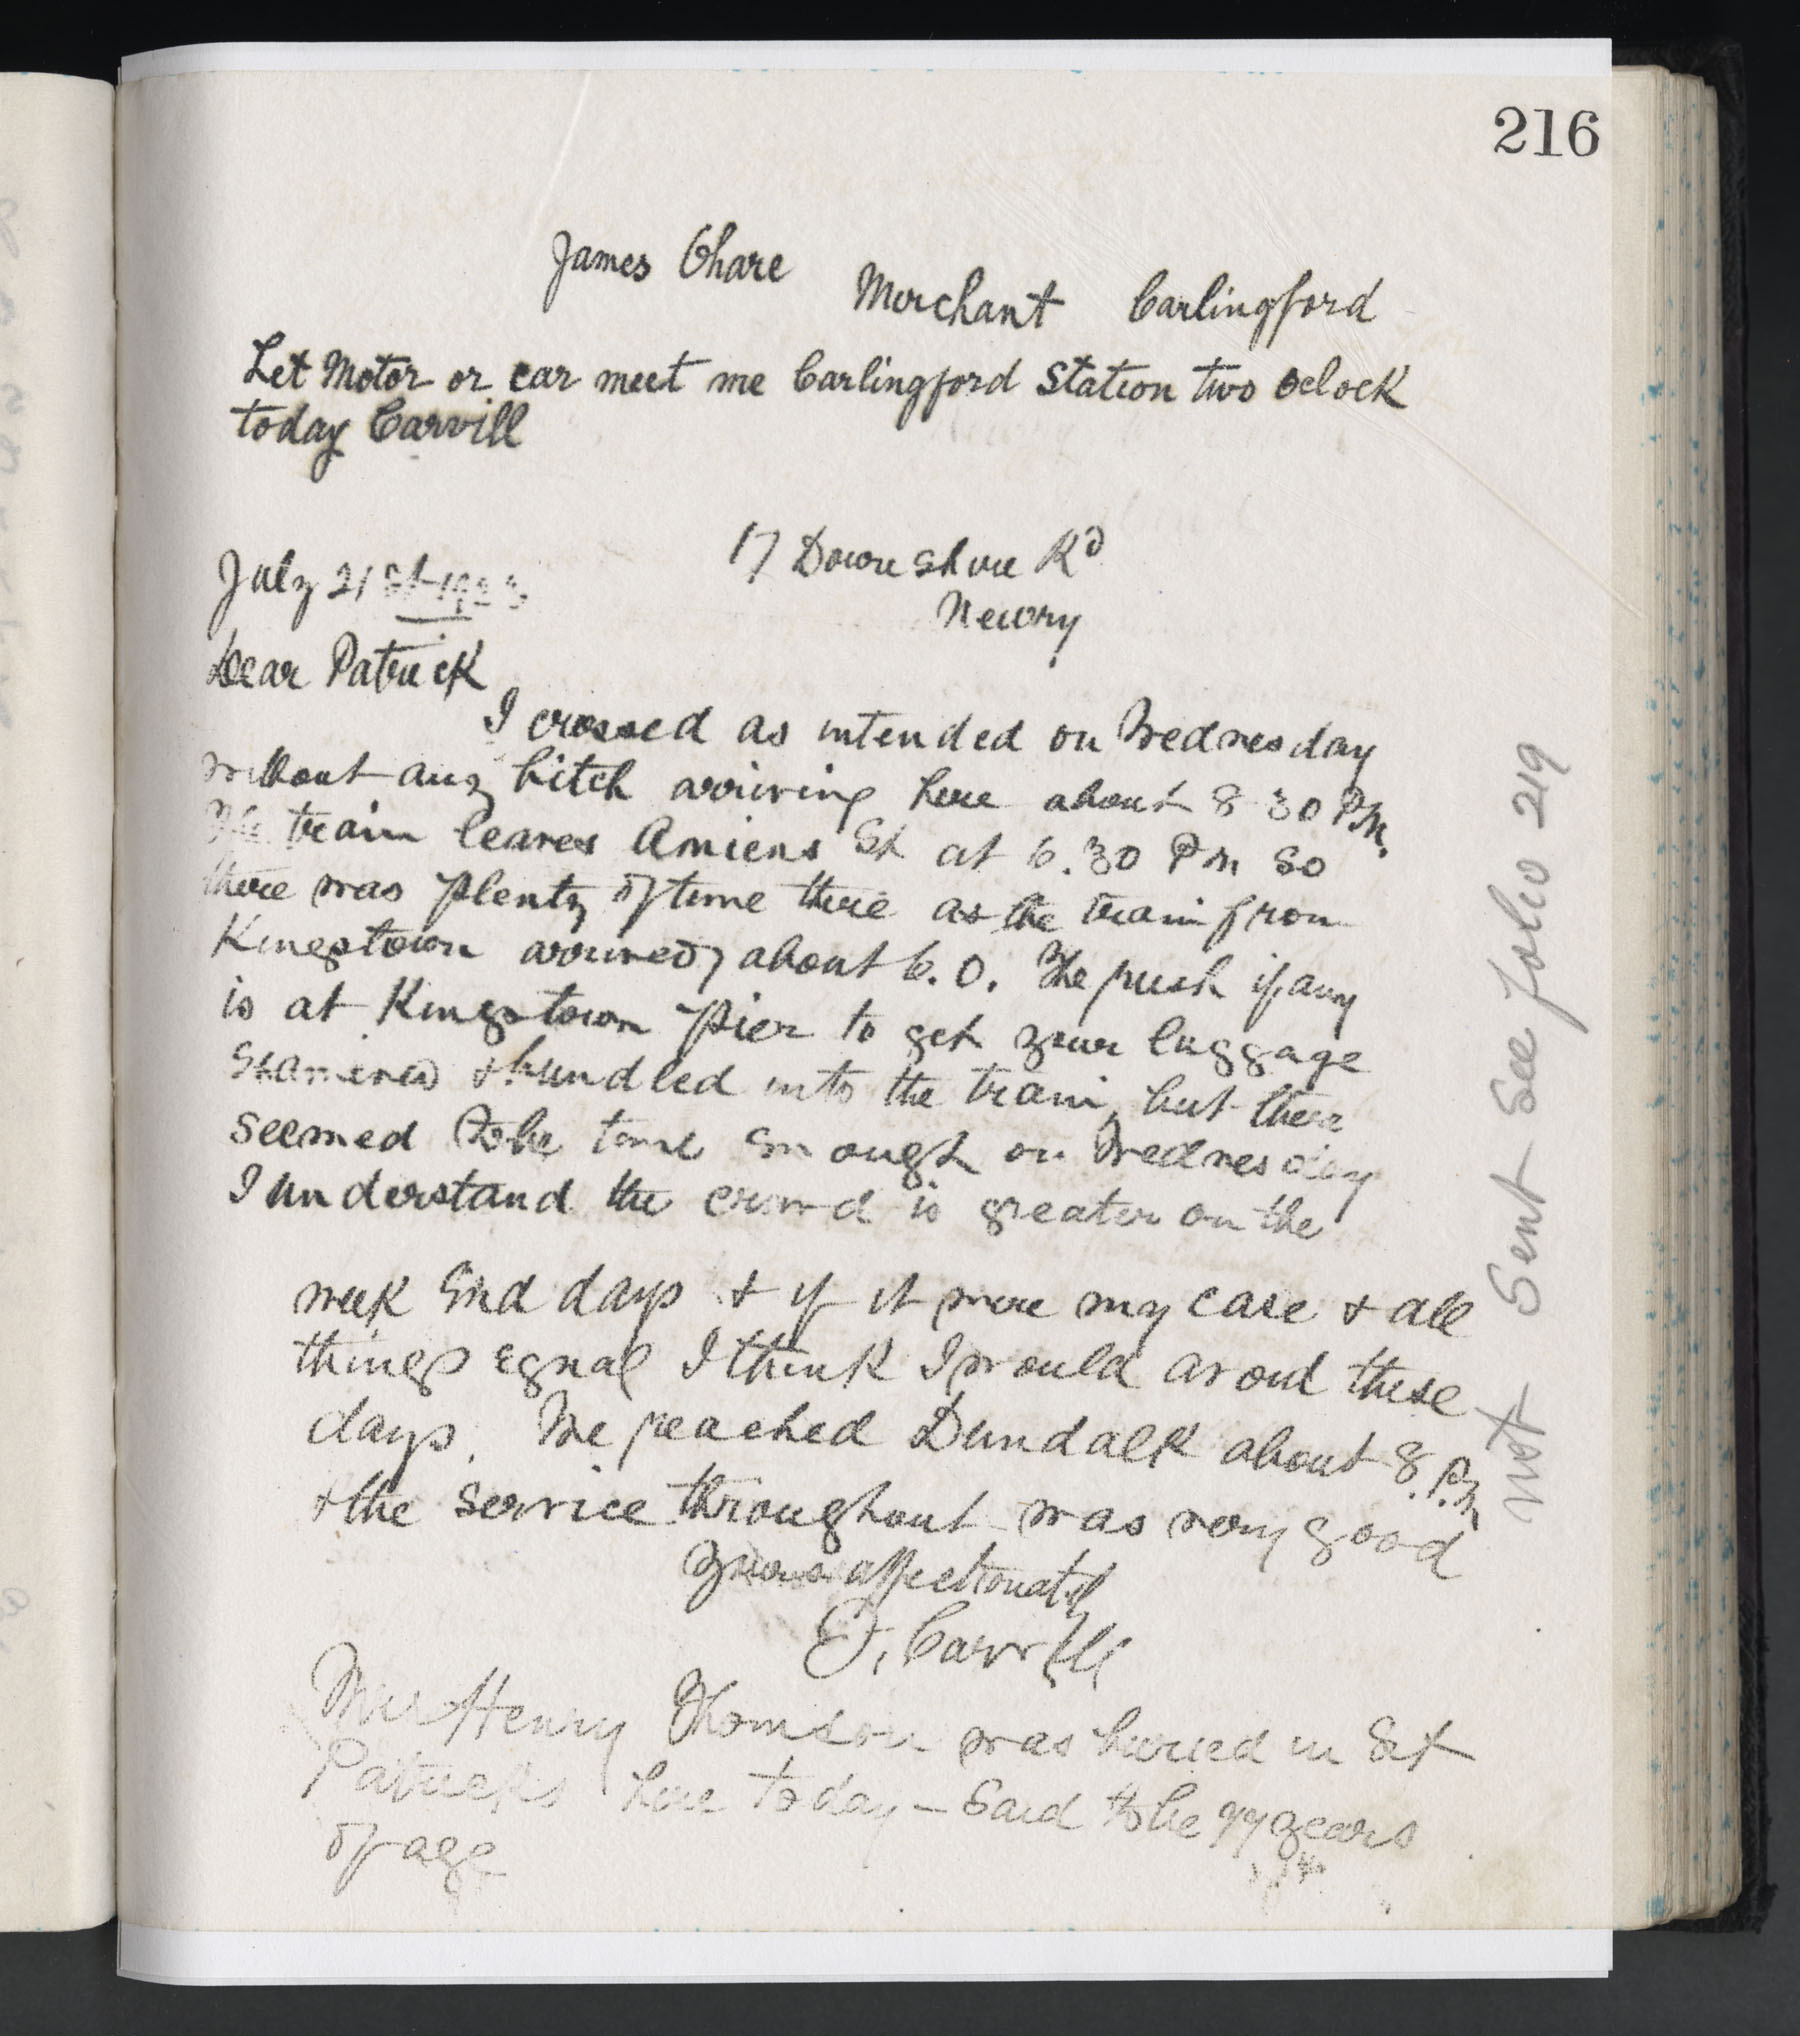 216
James Ohare Merchant Carlingford
Let Motor or car meet me Carlingford Station two oclock
today Carvill
17 Downshire Rd
Newry
July 21st 1923
Dear Patrick
I crossed as intended on Wednesday
without any hitch arriving here about 8 30 PM.
The train leaves Amiens St at 6.30 PM so
there was plenty of time there as the train from
Kingstown arrived about 6.0. The push if any
is at Kingstown Pier to get your luggage
Examined & bundled into the train, but there
seemed to be time Enough on Wednesday
I understand the crowd is greater on the
week End days & if it were my case & all
things Equal I think I would avoid these
days. We reached Dundalk about 8.P.M
& the service throughout was very good
Yours affectionately
Carvill
Henry Thomson was buried in St
Patricks here today – Said to be 77 years
of age
not Sent See folio 219